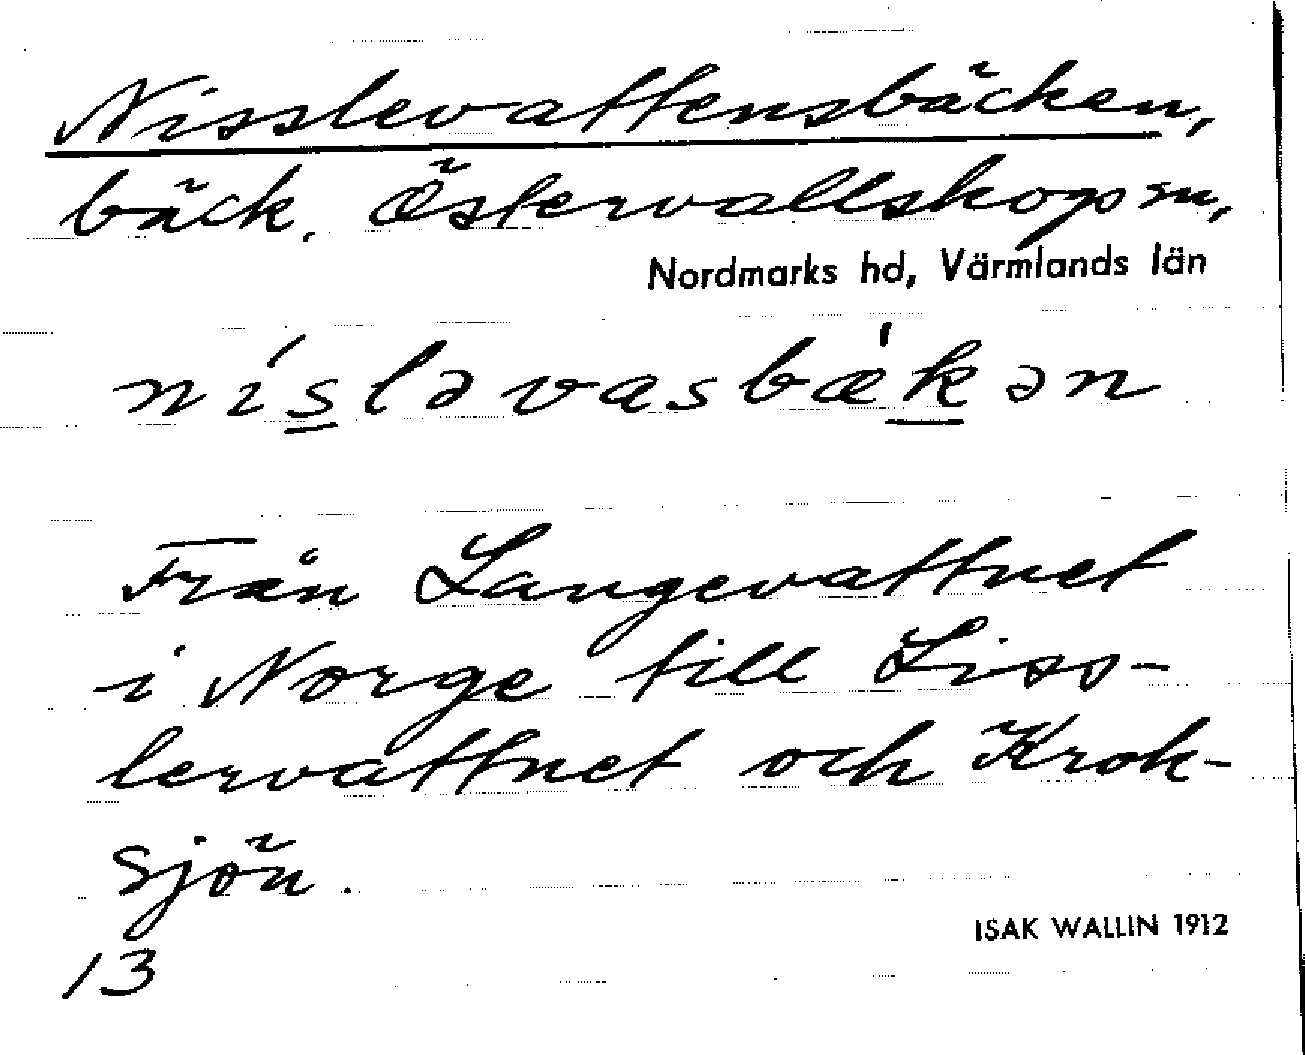 Nisslevattensbäcken,
bäck. Östervallskogs sn,
Nordmarks hd, Värmlands län
nísləvasbæ̀kən
Från Langevattnet
i Norge till Liss-
lervattnet och Krok-
sjön.
ISAK WALLIN 1912
13